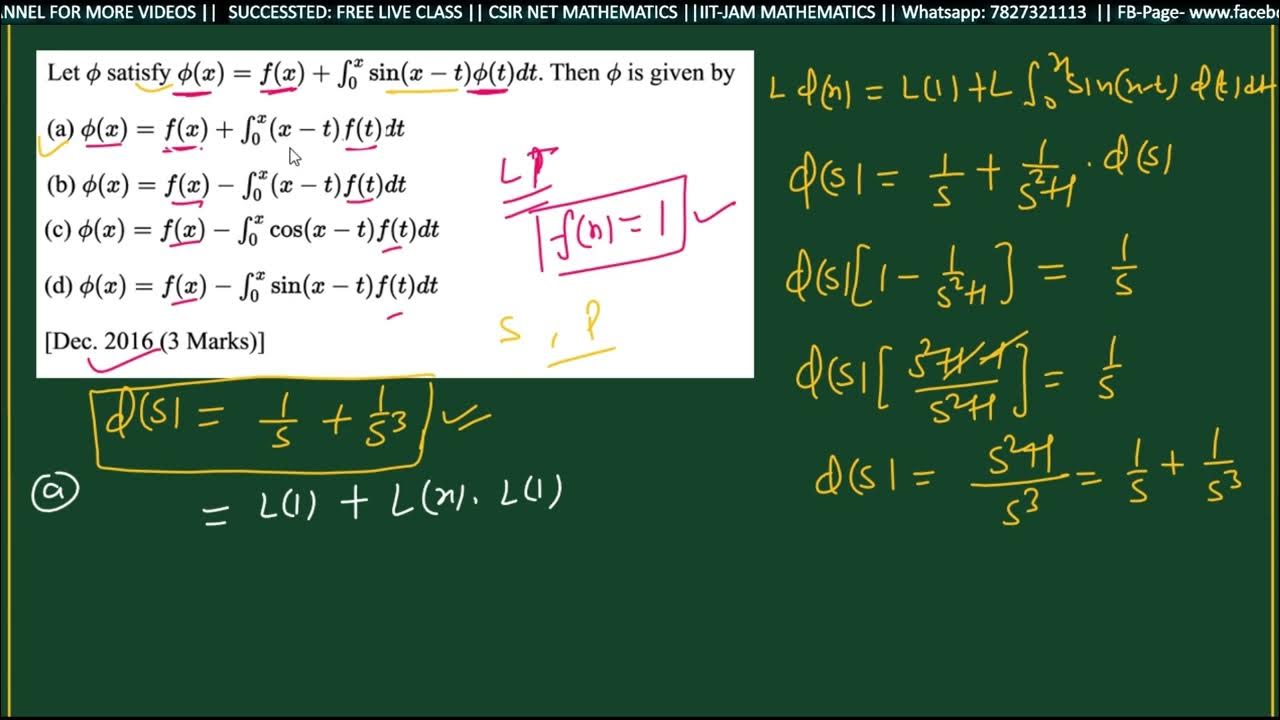 ANNEL FOR MORE VIDEOS || SUCCESSTED: FREE LIVE CLASS || CSIR NET MATHEMATICS ||IIT-JAM MATHEMATICS || Whatsapp: 7827321113 || FB-Page- www.faceb
Let ϕ satisfy ϕ(x) = f(x) + ∫₀ˣ sin(x − t)ϕ(t)dt. Then ϕ is given by
(a) ϕ(x) = f(x) + ∫₀ˣ(x − t)f(t)dt
(b) ϕ(x) = f(x) − ∫₀ˣ(x − t)f(t)dt
(c) ϕ(x) = f(x) − ∫₀ˣ cos(x − t)f(t)dt
(d) ϕ(x) = f(x) − ∫₀ˣ sin(x − t)f(t)dt
[Dec. 2016 (3 Marks)]
LT
f(x) = 1
S , P
ϕ(s) = 1/s + 1/s³
(a) = L(1) + L(x). L(1)
L ϕ(x) = L(1) + L ∫₀ˣ sin(x-t) ϕ(t)dt
ϕ(s) = 1/s + 1/(s²+1) · ϕ(s)
ϕ(s)[1 − 1/(s²+1)] = 1/s
ϕ(s)[(s²+1-1)/(s²+1)] = 1/s
ϕ(s) = (s²+1)/s³ = 1/s + 1/s³